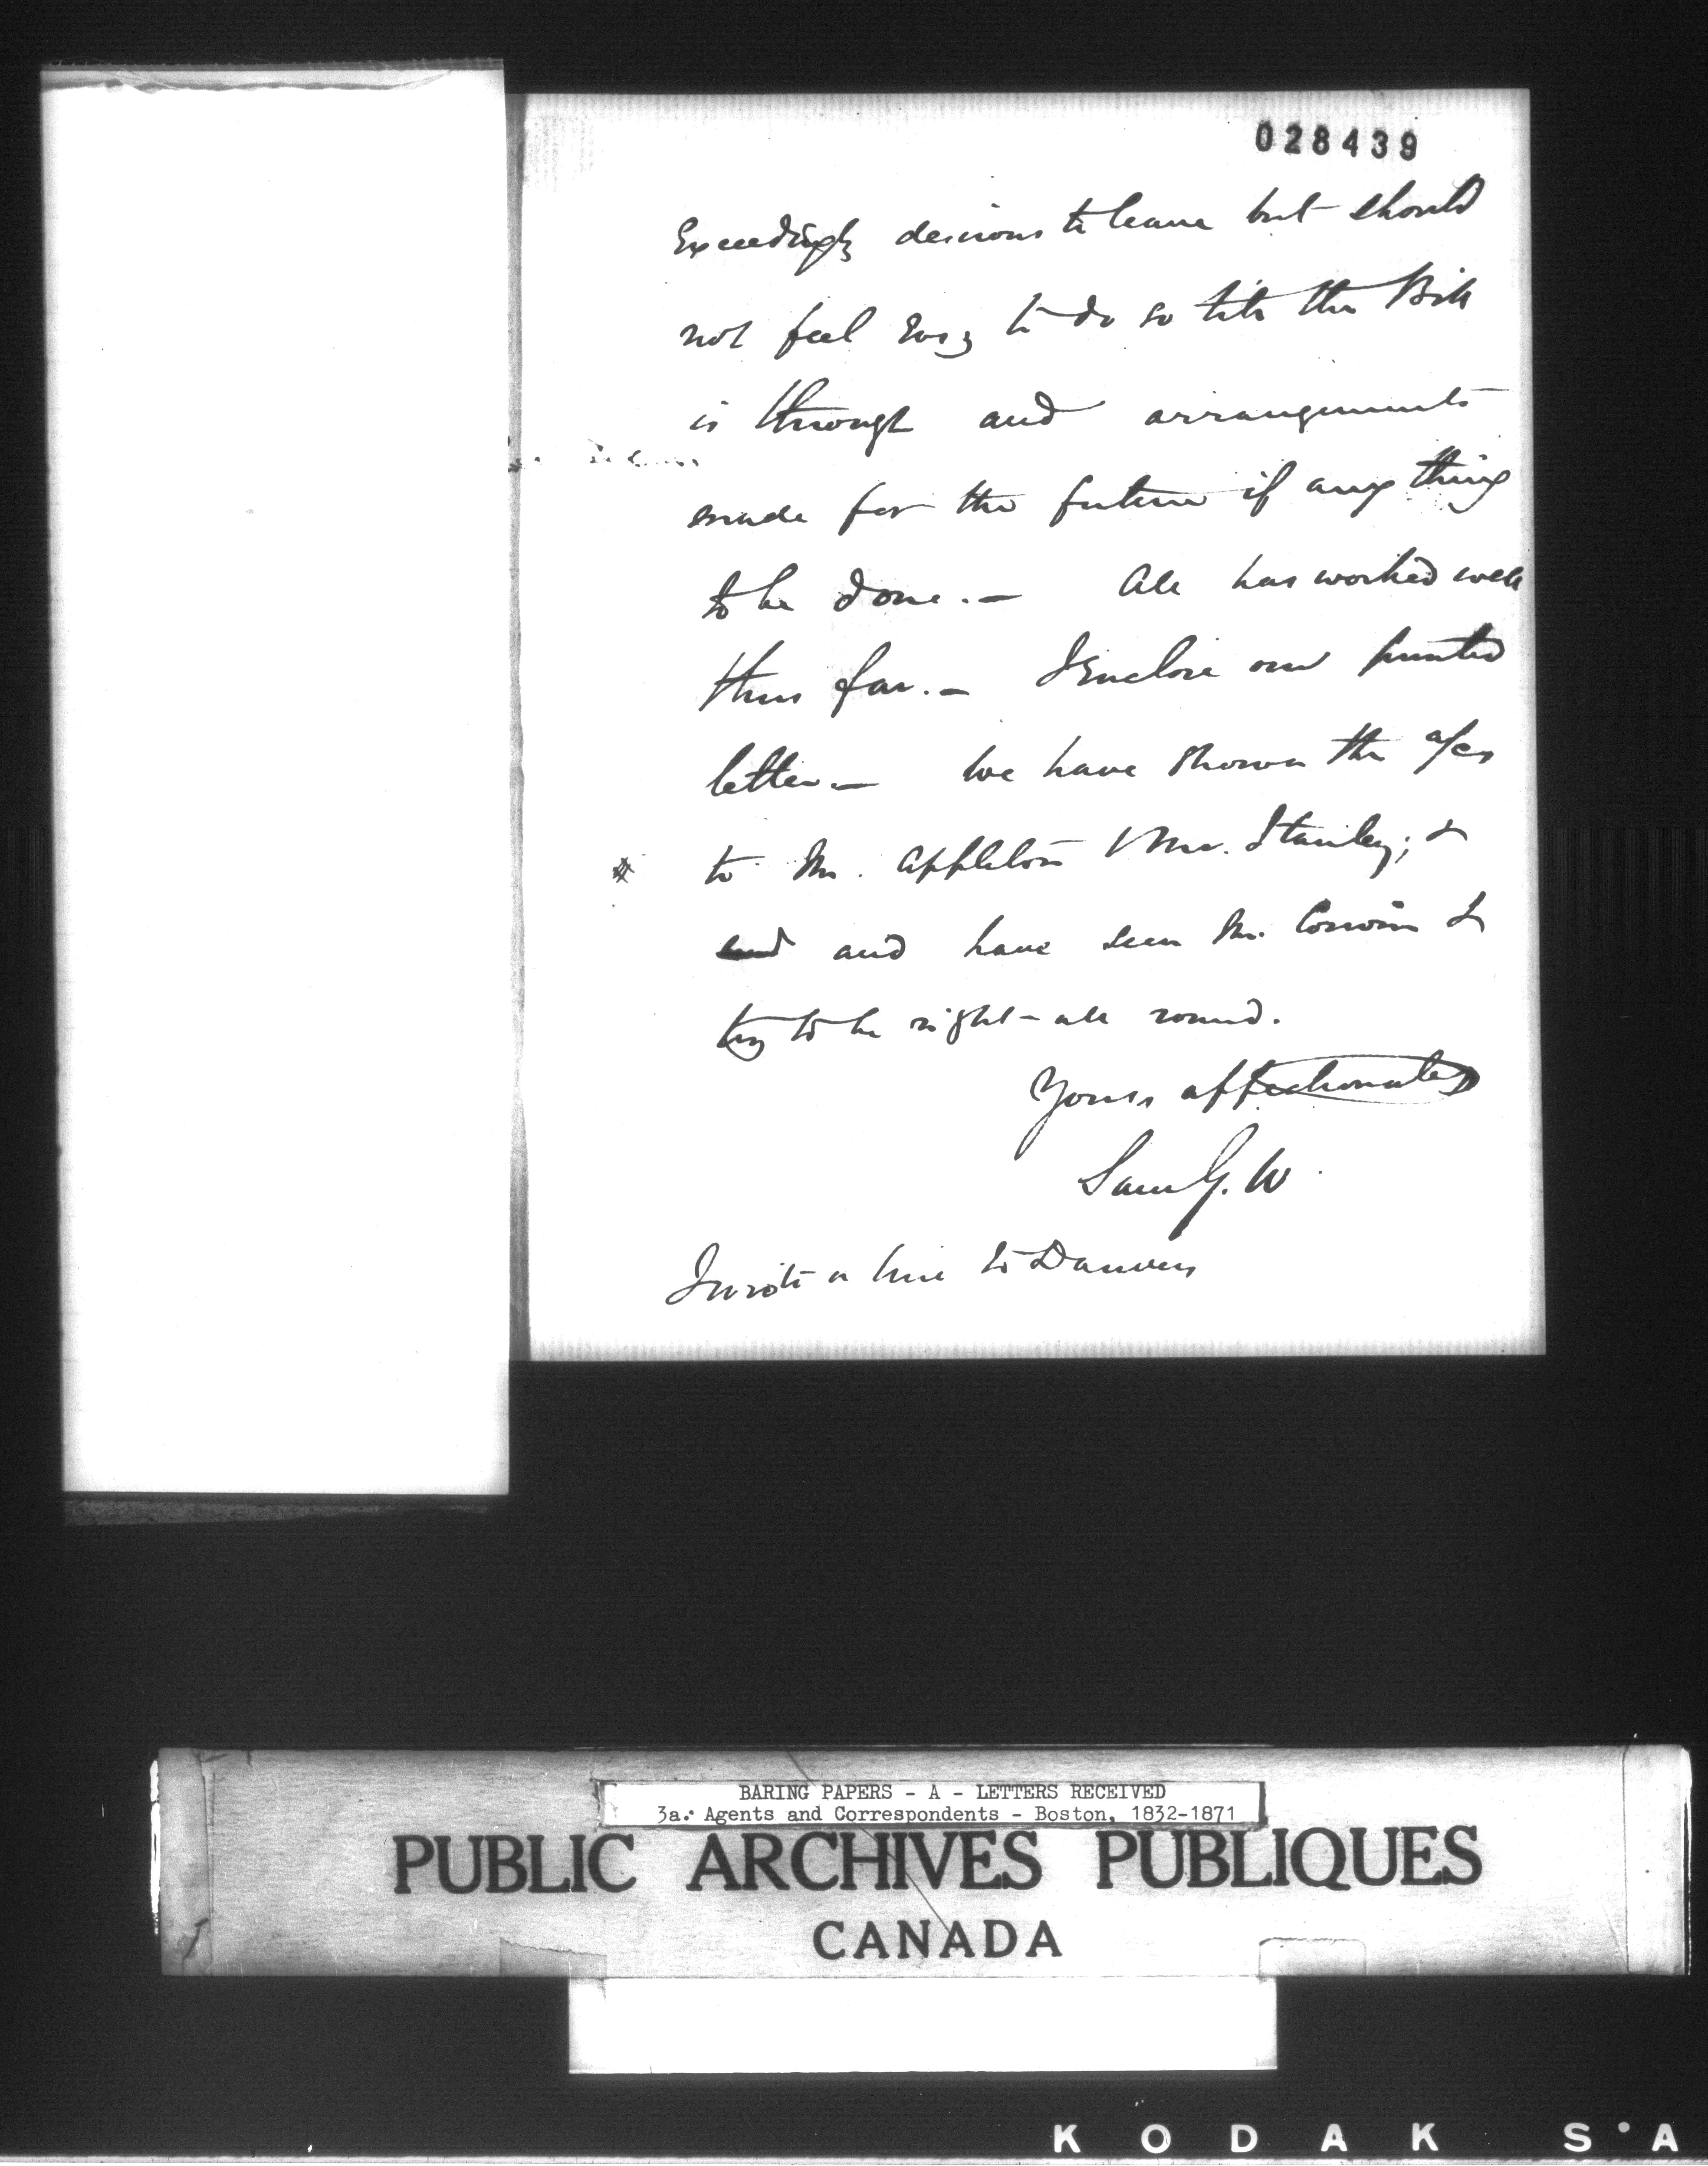 028439
Exceedingly desirous to leave but should
not feel easy to do so till the Bill
is through and arrangements
made for the future if any thing
to be done. — All has worked well
thus far. — I Enclose our printed
letter — We have shown the a/cs
to Mr. Appleton & Mr. Stanley; &
and and have seen Mr. Corwin &
try to be right all round.
Yours affectionately
Sam G. W.
I wrote a line to Danvers
BARING PAPERS - A - LETTERS RECEIVED
3a. Agents and Correspondents - Boston, 1832-1871
PUBLIC ARCHIVES PUBLIQUES
CANADA
KODAK S'A